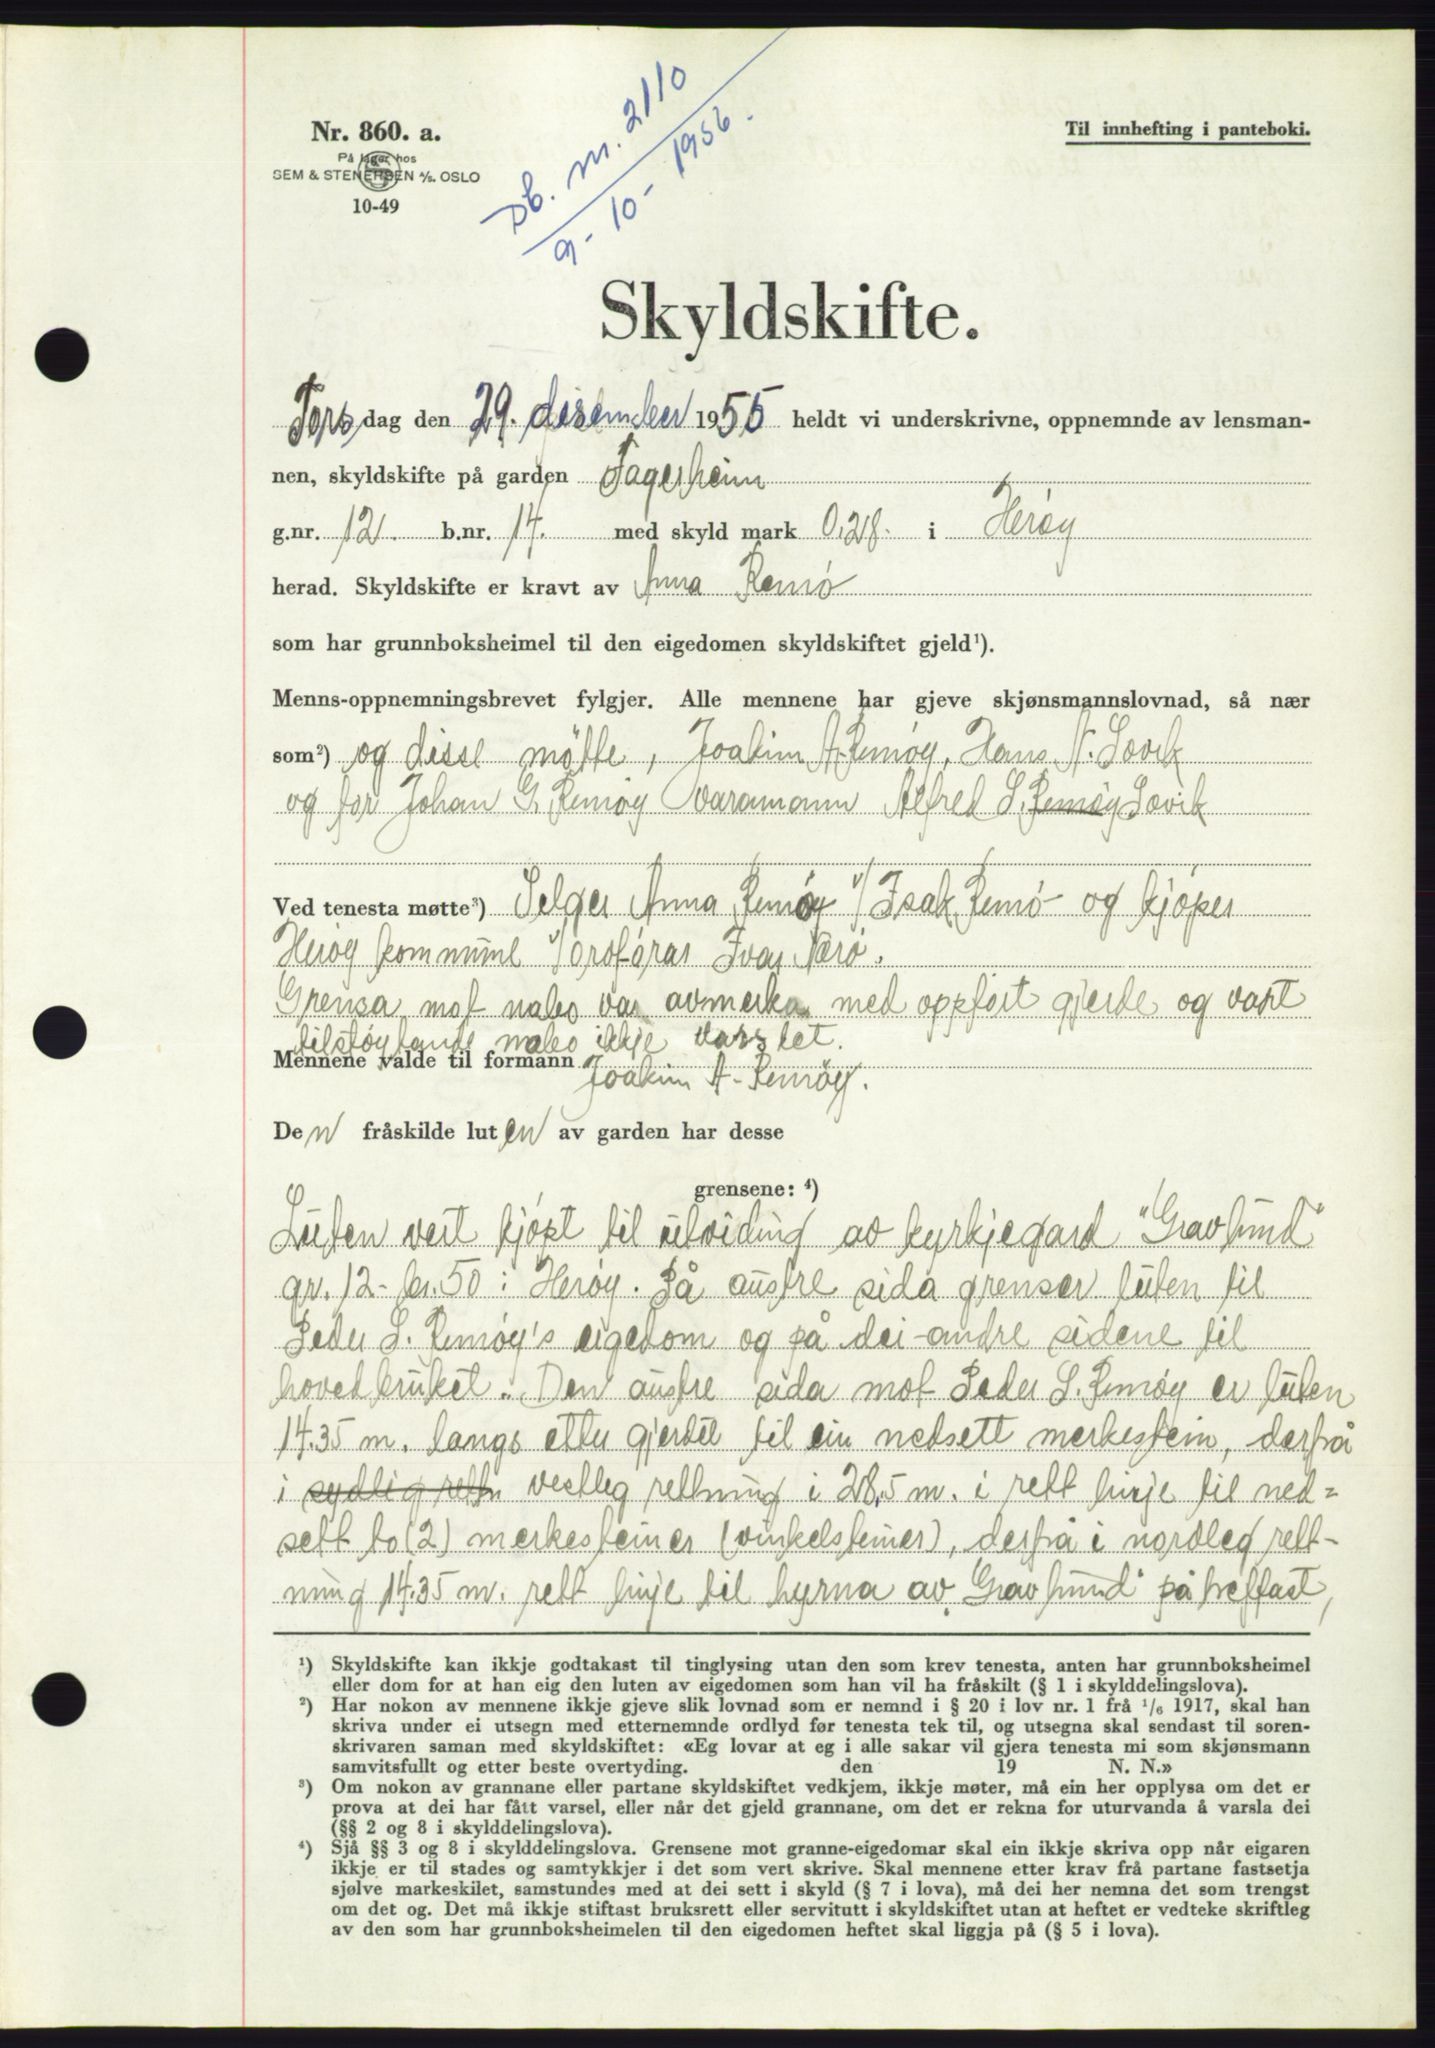 Nr. 860. a.
På lager hos
SEM & STENERSEN A/S. OSLO
10-49
Db. nr. 2110
9-10-1956.
Til innhefting i panteboki.
Skyldskifte.
Torsdag den 29. desember 1955 heldt vi underskrivne, oppnemnde av lensman-
nen, skyldskifte på garden Fagerheim
g.nr. 12. b.nr. 14. med skyld mark 0,28. i Herøy
herad. Skyldskifte er kravt av Anna Remø
som har grunnboksheimel til den eigedomen skyldskiftet gjeld¹).
Menns-oppnemningsbrevet fylgjer. Alle mennene har gjeve skjønsmannslovnad, så nær
som²) og disse møtte, Joakim A. Remøy, Hans N. Sævik
og for Johan G. Remøy varamann Alfred S. Remøy Sævik
Ved tenesta møtte³) Selger Anna Remøy v/ Isak Remø og kjøper
Herøy kommune v/ ordførar Ivar Nerø.
Grensa mot nabo var avmerka med oppført gjerde og vart
tilstøytande nabo ikkje varslet.
Mennene valde til formann Joakim A. Remøy.
Den fråskilde luten av garden har desse
grensene: ⁴)
Luten vert kjøpt til utviding av kyrkjegard "Gravlund"
gr. 12 - br. 50 i Herøy. På austre sida grenser luten til
Peder S. Remøy's eigedom og på dei andre sidene til
hovedbruket. Den austre sida mot Peder S. Remøy er luten
14.35 m. langs etter gjerdet til ein nedsett merkestein, derfrå
i sydlig retn vestleg rettning i 28,5 m. i rett linje til ned=
sett to (2) merkesteiner (vinkelsteiner), derfrå i nordleg rett-
ning 14.35 m. rett linje til hyrna av "Gravlund" på treffast,
¹) Skyldskifte kan ikkje godtakast til tinglysing utan den som krev tenesta, anten har grunnboksheimel
eller dom for at han eig den luten av eigedomen som han vil ha fråskilt (§ 1 i skylddelingslova).
²) Har nokon av mennene ikkje gjeve slik lovnad som er nemnd i § 20 i lov nr. 1 frå ¹/₆ 1917, skal han
skriva under ei utsegn med etternemnde ordlyd før tenesta tek til, og utsegna skal sendast til soren-
skrivaren saman med skyldskiftet: «Eg lovar at eg i alle sakar vil gjera tenesta mi som skjønsmann
samvitsfullt og etter beste overtyding. den 19 N. N.»
³) Om nokon av grannane eller partane skyldskiftet vedkjem, ikkje møter, må ein her opplysa om det er
prova at dei har fått varsel, eller når det gjeld grannane, om det er rekna for uturvanda å varsla dei
(§§ 2 og 8 i skylddelingslova).
⁴) Sjå §§ 3 og 8 i skylddelingslova. Grensene mot granne-eigedomar skal ein ikkje skriva opp når eigaren
ikkje er til stades og samtykkjer i det som vert skrive. Skal mennene etter krav frå partane fastsetja
sjølve markeskilet, samstundes med at dei sett i skyld (§ 7 i lova), må dei her nemna det som trengst
om det og. Det må ikkje stiftast bruksrett eller servitutt i skyldskiftet utan at heftet er vedteke skriftleg
av den som har grunnboksheimelen til den eigedomen heftet skal liggja på (§ 5 i lova).